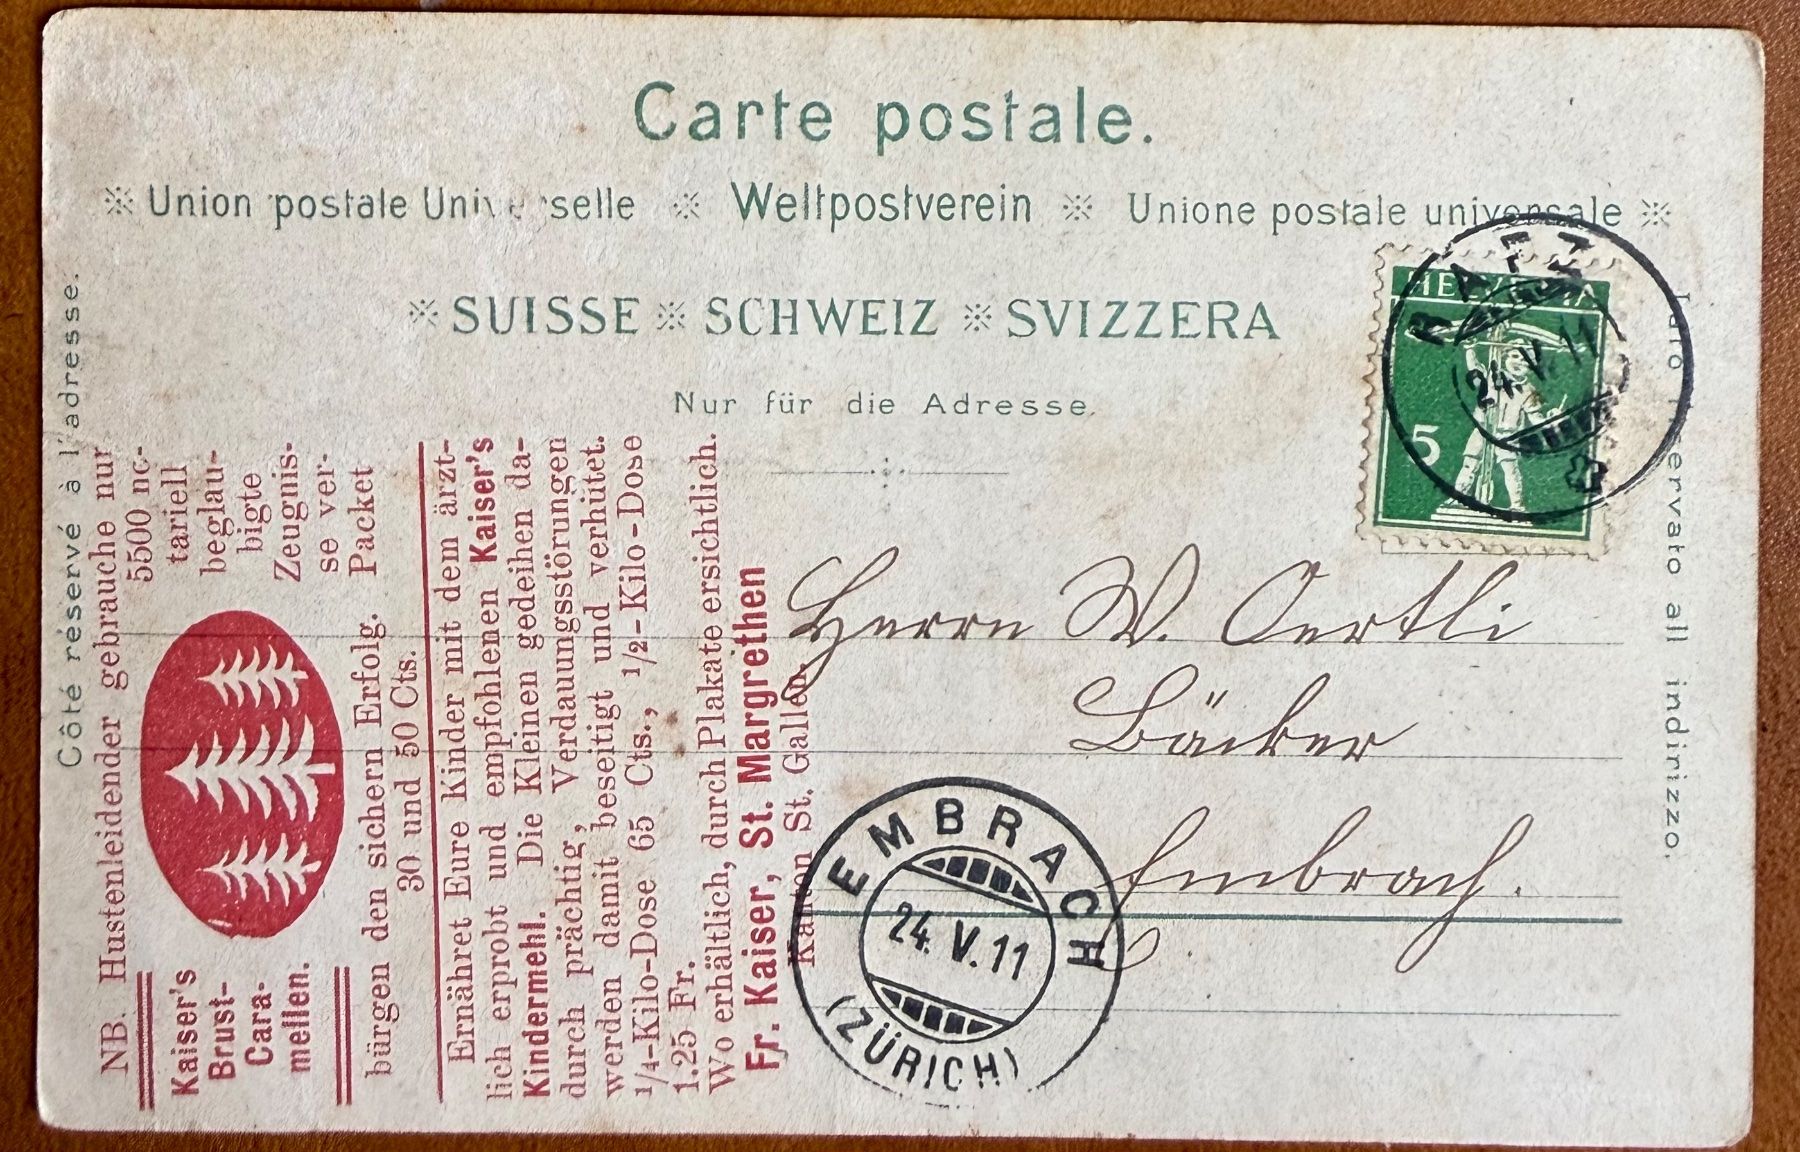 Carte postale.
※ Union postale Universelle ※ Weltpostverein ※ Unione postale universale ※
※ SUISSE ※ SCHWEIZ ※ SVIZZERA
Nur für die Adresse.
Côté réservé à l'adresse.
Lato riservato all indirizzo,
HELVETIA
5
RAFZ
24. V. 11
NB. Hustenleidender gebrauche nur
Kaiser's
Brust-
Cara-
mellen.
5500 no-
tariell
beglau-
bigte
Zeugnis-
se ver-
bürgen den sichern Erfolg. Packet
30 und 50 Cts.
Ernähret Eure Kinder mit dem ärzt-
lich erprobt und empfohlenen Kaiser's
Kindermehl. Die Kleinen gedeihen da-
durch prächtig, Verdauungsstörungen
werden damit beseitigt und verhütet.
1/4-Kilo-Dose 65 Cts., 1/2-Kilo-Dose
1.25 Fr.
Wo erhältlich, durch Plakate ersichtlich.
Fr. Kaiser, St. Margrethen
Kanton St. Gallen.
Herrn W. Oertli
Bäcker
Embrach.
EMBRACH
24. V. 11
(ZÜRICH)